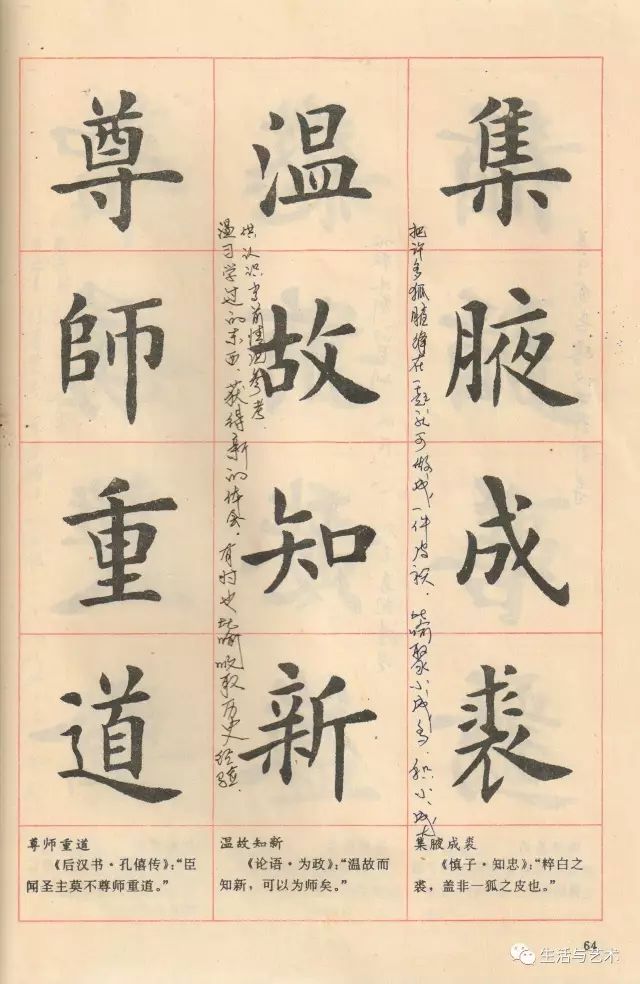 集腋成裘
把许多狐腋缝在一起就可做成一件皮袄．比喻聚小成多．积小成大
温故知新
温习学过的东西．获得新的体会．有时也比喻吸取历史经验．
供认识当前情况参考．
尊師重道
集腋成裘
《慎子·知忠》：“粹白之
裘，盖非一狐之皮也。”
温故知新
《论语·为政》：“温故而
知新，可以为师矣。”
尊师重道
《后汉书·孔僖传》：“臣
闻圣主莫不尊师重道。”
64
生活与艺术